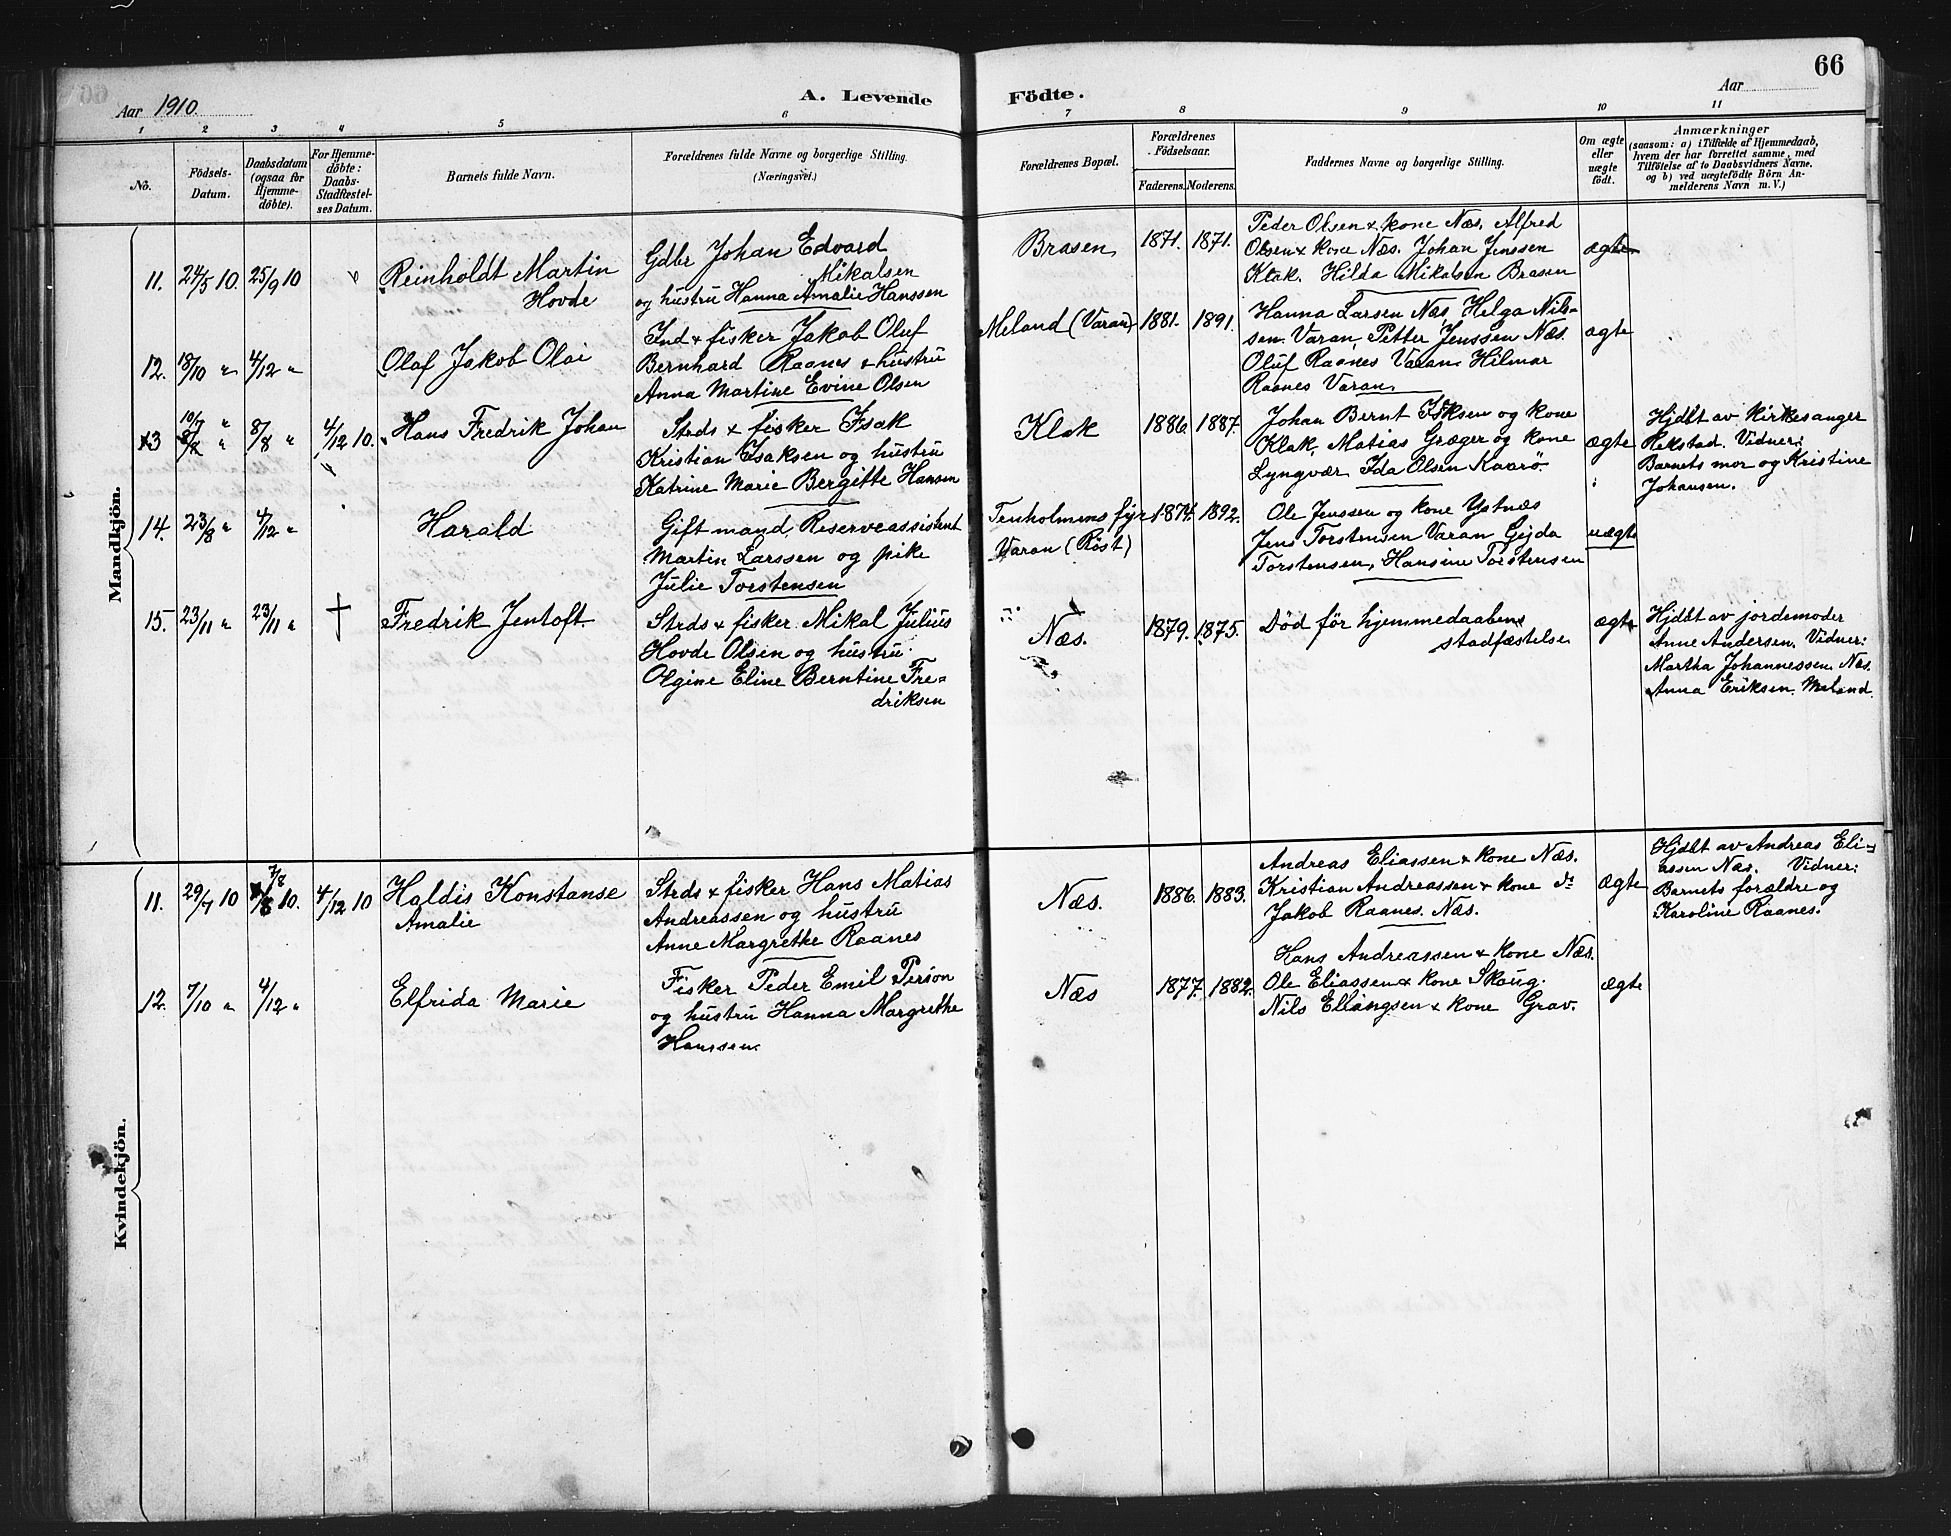 66
Aar 1910.
A. Levende Födte.
Aar
1 2 3 4 5 6 7 8 9 10 11
No.
Födsels-
Datum.
Daabsdatum
(ogsaa for
Hjemme-
döbte).
For Hjemme-
döbte:
Daabs-
Stadfæstel-
ses Datum.
Barnets fulde Navn.
Forældrenes fulde Navne og borgerlige Stilling.
(Næringsvei.)
Forældrenes Bopæl.
Forældrenes
Födselsaar.
Faderens. Moderens.
Faddernes Navne og borgerlige Stilling.
Om ægte
eller
uægte
födt.
Anmærkninger
(saasom: a) i Tilfælde af Hjemmedaab,
hvem der har forrettet samme, med
Tilföielse af to Daabsvidners Navne.
og b) ved uægtefödte Börn An-
melderens Navn m. V.)
Mandkjön.
11. 24/5 10. 25/9 10
Reinholdt Martin
Hovde
Gdbr Johan Edvard
Mikalsen
og hustru Hanna Amalie Hanssen
Brasen
1871. 1871.
Peder Olsen & kone Næs. Alfred
Olsen & kone Næs. Johan Jenssen
Klak. Hilda Mikalsen Brasen
ægte
12. 18/10 " 4/12 "
Olaf Jakob Olai
Ind & fisker Jakob Oluf
Bernhard Raanes & hustru
Anna Martine Evine Olsen
Meland (Varan)
1881. 1891.
Hanna Larsen Næs, Helga Nils-
sen. Varan, Petter Jenssen Næs.
Oluf Raanes Varan. Hilmar
Raanes Varan.
ægte
13 10/7 " 8/8 " 4/12 10.
Hans Fredrik Johan
Strds & fisker Isak
Kristian Isaksen og hustru
Katrine Marie Bergitte Hansen
Klak
1886. 1887.
Johan Bernt Isaksen og kone
Klak, Matias Græger og kone
Lyngvær Ida Olsen Kaarö
ægte
Hjdbt av kirkesanger
Rekstad. Vidner:
Barnets mor og Kristine
Johansen.
14. 23/8 " 4/12 "
Harald
Gift mand, Reserveassistent
Martin Larssen og pike
Julie Torstensen
Tenholmens fyr
Varan (Röst)
1874. 1892.
Ole Jenssen og kone Ystnæs
Jens Torstensen Varan Gejda
Torstensen, Hansine Torstensen
uægte
15. 23/11 " 23/11 " †
Fredrik Jentoft
Strds & fisker Mikal Julius
Hovde Olsen og hustru
Olgine Eline Berntine Fre-
driksen
Næs.
1879. 1875.
Död för hjemmedaabens
stadfæstelse
ægte
Hjdbt av jordemoder
Anne Andersen. Vidner:
Martha Johannessen. Næs.
Anna Eriksen. Meland.
Kvindekjön.
11. 29/7 10 7/8 10. 4/12 10
Haldis Konstanse
Amalie
Strds & fisker Hans Matias
Andreassen og hustru
Anne Margrethe Raanes
Næs.
1886. 1883.
Andreas Eliassen & kone Næs.
Kristian Andreassen & kone do
Jakob Raanes. Næs.
ægte
Hjdbt av Andreas Eli-
assen Næs. Vidner:
Barnets forældre og
Karoline Raanes.
12. 7/10 " 4/12 "
Elfrida Marie
Fisker Peder Emil Person
og hustru Hanna Margrethe
Hanssen.
Næs
1877. 1882.
Hans Andreassen & kone Næs.
Ole Eliassen & kone Skaug.
Nils Ellingsen & kone Grav.
ægte